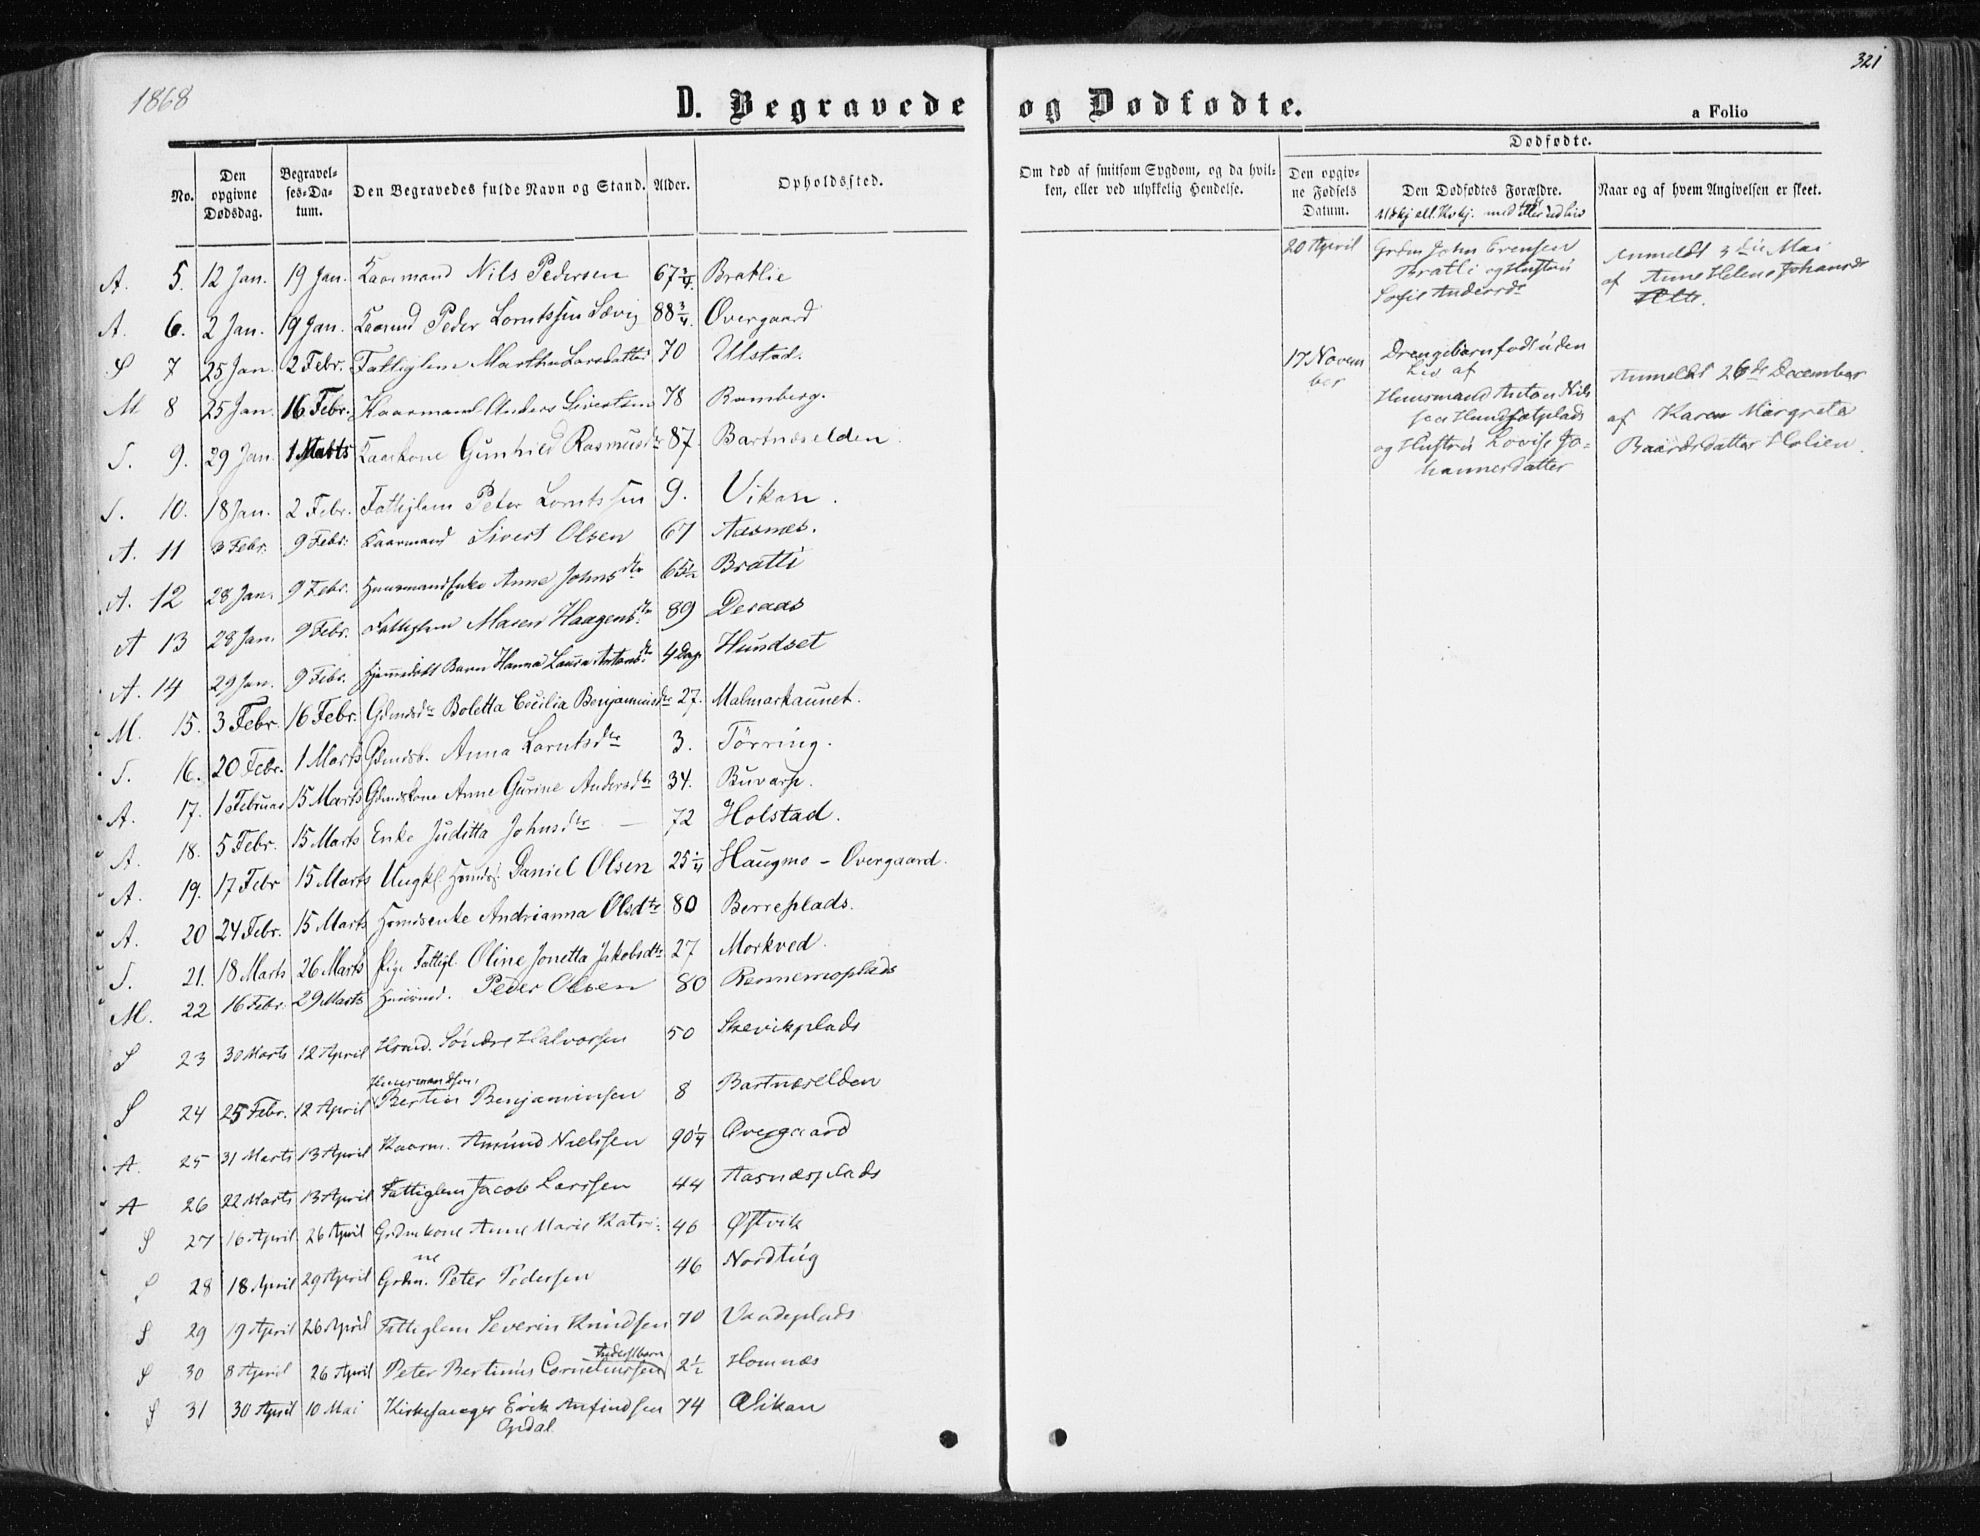 1868
D. Begravede og Dødfødte.
321
a Folio
No.
Den opgivne Dødsdag.
Begravelses-Datum.
Den Begravedes fulde Navn og Stand.
Alder.
Opholdssted.
Om død af smitsom Sygdom, og da hvilken, eller ved ulykkelig Hendelse.
Dødfødte.
Den opgivne Fødsels Datum.
Den Dødfødtes Forældre.
Naar og af hvem Angivelsen er skeet.
A. 5. 12 Jan. 19 Jan. Kaarmand Nils Pedersen 67 3/4. Bratlie
A. 6. 2 Jan. 19 Jan. Kaarmd Peder Lorntssen Sævig 88 3/4. Overgaard
S 7 25 Jan. 2 Febr. Fattiglem Martha Larsdatter 70 Ulstad.
M 8 25 Jan. 16 Febr. Kaarmand Anders Sivertsen 78 Ramberg.
S. 9. 29 Jan. 1 Marts Kaarkone Gunhild Rasmusdtr 87 Bartnæselden
S. 10. 18 Jan. 2 Febr. Fattiglem Peter Lorntssen 9. Vikan.
A. 11 3 Febr. 9 Febr. Kaarmand Sivert Olsen 67 Aasnæs.
A. 12 28 Jan. 9 Febr. Huusmandsenke Anne Johnsdtr 65 1/2 Bratli
A 13 28 Jan. 9 Febr. Fattiglem Maren Haagensdtr 89 Deraas
A. 14 29 Jan. 9 Febr. Hjemmedøbt Barn Hanna Laura Antonsdtr 4 Dag. Hundset
M. 15. 3 Febr. 16 Febr. Gdmdsdr Boletta Cecilia Benjaminsdtr 27. Malmarkaunet.
S. 16. 20 Febr. 1 Marts Gdmdsb. Anna Lorntsdtr 3. Tørring.
A. 17. 1 Februar 15 Marts Gdmdskone Anne Gurine Andersdtr 34. Buvarp.
A. 18. 5 Febr. 15 Marts Enke Juditta Johnsdtr 72 Holstad.
A. 19. 17 Febr 15 Marts Ungkl. Daniel Olsen 25 1/4 Haugmo - Overgaard.
A. 20 24 Febr. 15 Marts Hsmdsenke Andrianna Olsdtr 80 Berreplads.
S. 21. 18 Marts 26 Marts Pige Fattigl. Oline Jonetta Jakobsdtr 27 Morkved.
M. 22 16 Febr. 29 Marts Huusmd. Peder Olsen 80 Rennemoplads
S 23 30 Marts 12 April Hsmd. Søndre Halvorsen 50 Skevikplads
Huusmandssøn
S 24 25 Febr. 12 April Bertin Benjaminsen 8 Bartnæselden
A. 25 31 Marts 13 April Kaarm. Amund Nielssen 90 1/4 Overgaard
A 26 22 Marts 13 April Fattiglem Jacob Larssen 44 Aasnæsplads
S 27 16 April 26 April Grdmkone Anne Marie Katri- 46 Østvik
ne
S 28 18 April 29 April Grdm. Peter Pedersen 46 Nordtug
S 29 19 April 26 April Fattiglem Severin Knudsen 70 Vaadeplads
Inderstbarn
S 30 8 April 26 April Peter Bertinus Corneliussen 2 1/2 Homnæs
S 31 30 April 10 Mai Kirkesanger Erik Anfindsen 74 Vikan
Opdal
20 April
Grdm John Evensen
Bratli og Hustru
Sofie Andersdr
Anmeldt 3die Mai
af Anne Helene Johansdr
17 Novem
ber
Drengebarn født uden
Liv af
Huusmand Anton Nils
sen Hundsetplads
og Hustru Lovise Jo-
hannesdatter
Anmeldt 26de December
af Karen Margreta
Baardsdatter Holien.